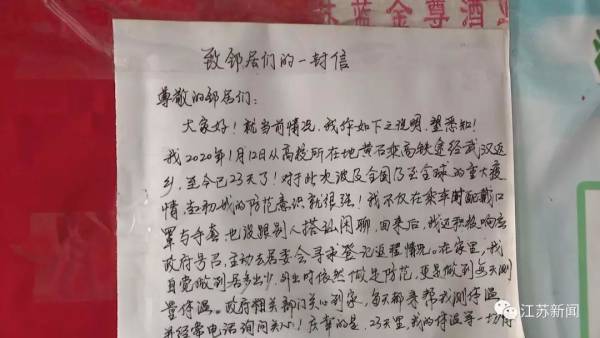 苏蓝金尊酒
致邻居们的一封信
尊敬的邻居们:
大家好!就当前情况,我作如下之说明,望悉知!
我2020年1月12日从高校所在地黄石乘高铁途经武汉返
乡,至今已23天了!对于此次波及全国乃至全球的重大疫
情,起初我的防范意识就很强!我不仅在乘车时配戴口
罩与手套,也没跟别人搭讪闲聊,回来后,我还积极响应
政府号召,主动去居委会寻求登记返程情况。在家里,我
自觉做到居多出少,外出时依然做足防范,更是做到每天测
量体温。政府相关部门关心到家,每天都来帮我测体温
并经常电话询问关心!庆幸的是,23天里,我的体温等一切
江苏新闻